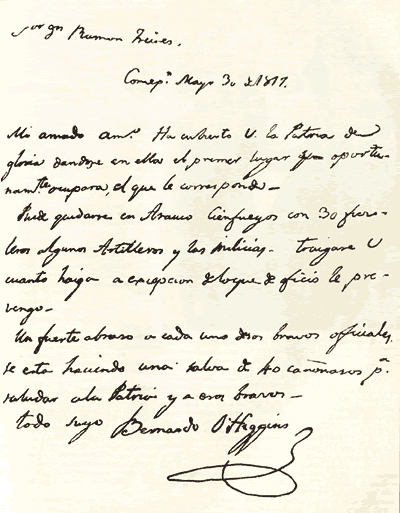 Sor Dn Ramon Freire.
Concepn. Mayo 30 de 1817.
Mi amado amo. Ha cubierto V. la Patria de
gloria dandose en ella el primer lugar que oportu-
namte. ocupara, el que le corresponde—
Puede quedarse en Arauco Cienfuegos con 30 fusi-
leros algunos Artilleros y las milicias. traigase V
cuanto haiga a excepcion de loque de oficio le pre-
vengo—
Un fuerte abraso a cada uno desos bravos oficiales.
se esta haciendo una salva de 40 cañonasos pa.
saludar ala Patria y a esos bravos—
todo suyo Bernardo O'Higgins